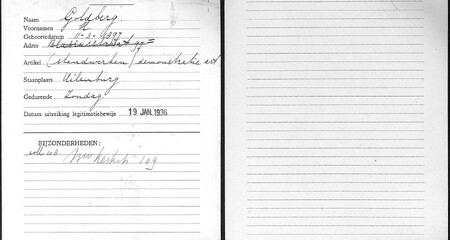 Naam Goldberg
Voornamen
Geboortedatum 11-3-1897
Adres Blasiusstraat 99=
Artikel (standwerken) demonstratie
Staanplaats Uilenburg
Gedurende Zondag
Datum uitreiking legitimatiebewijs 19 JAN. 1936
BIJZONDERHEDEN:
kerkstr 109